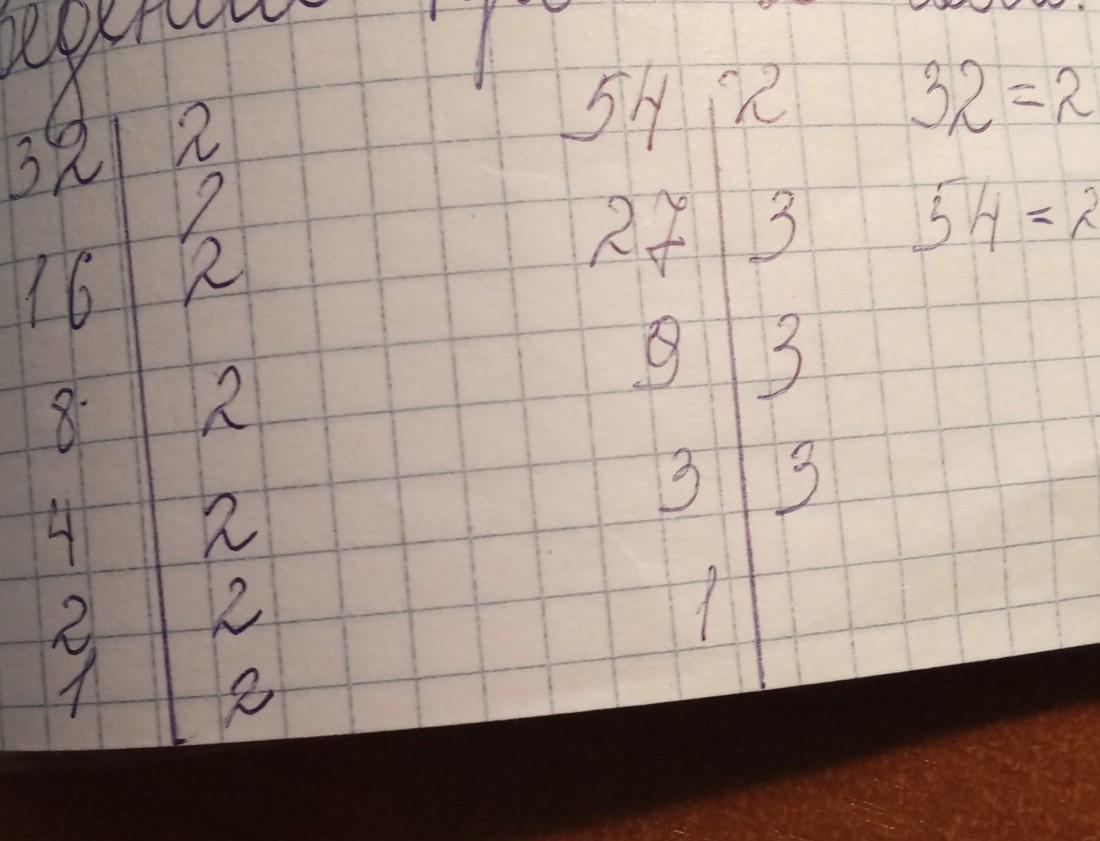 32 | 2 54 | 2 32 = 2
2
16 | 2 27 | 3 54 = 2
8 | 2 9 | 3
4 | 2 3 | 3
2 | 2 1 |
1 | 2